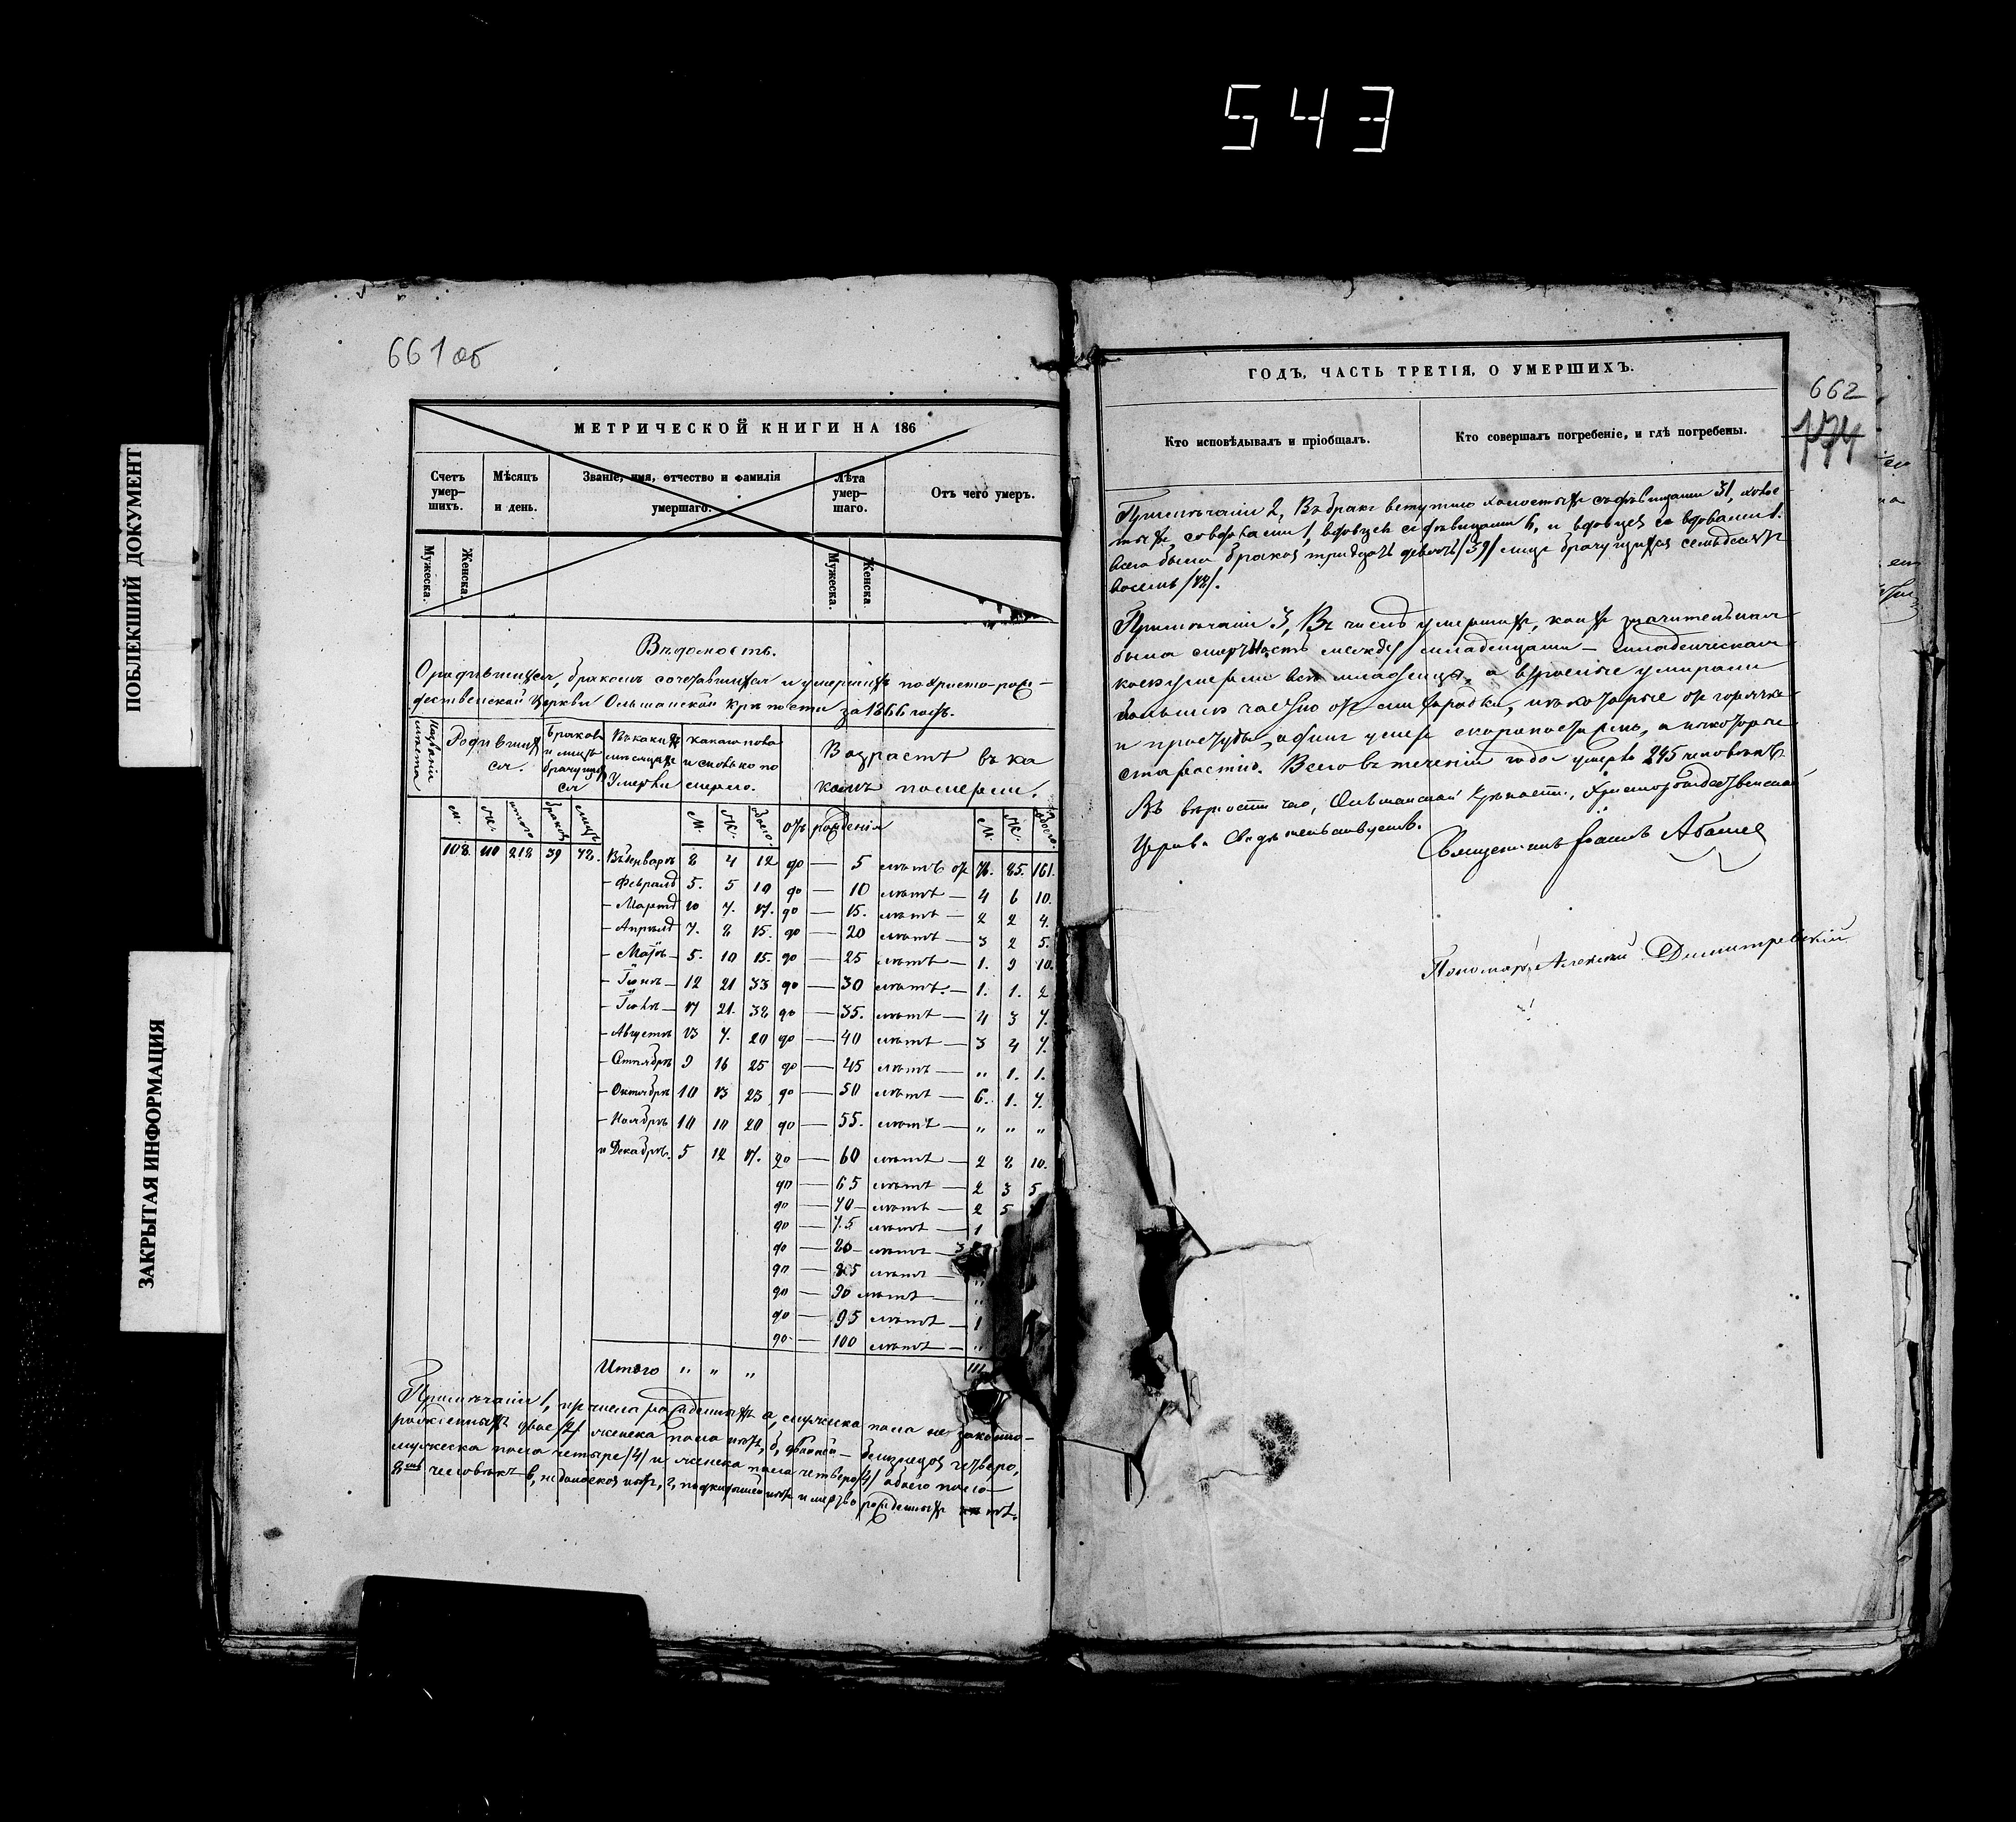 543
ПОБЛЕКШИЙ ДОКУМЕНТ
ЗАКРЫТАЯ ИНФОРМАЦИЯ
661 об
МЕТРИЧЕСКОЙ КНИГИ НА 186
Счетъ умер-шихъ.
Мѣсяцъ и день.
Званіе, имя, отчество и фамилія умершаго.
Лѣта умер-шаго.
Отъ чего умеръ.
Мужеска. Женска. Мужеска. Женска.
Вѣдомость.
О родившихся, бракомъ сочетавшихся и умершихъ по Христо-рож-
дественской Церкви Ольшанской крѣпости за 1866 годъ.
Родившихся.
Браковъ и лицъ брачущихся
Въ какихъ мѣсяцахъ умерли
какого пола и сколько померло.
Возрастъ въ ка
комъ померли.
м. ж. итого браков лицъ м. ж. обоего отъ рожденія м. ж. обоего
108. 110 218 39 78. Въ Январѣ 8 4 12 до — 5 лѣтъ 76. 85. 161.
— Февралѣ 5. 5 10 до — 10 лѣтъ — 4 6 10.
— Мартѣ 10 7. 17. до — 15. лѣтъ — 2 2 4.
— Апрѣлѣ 7. 8 15. до — 20 лѣтъ — 3 2 5.
— Маѣ — 5. 10 15. до — 25 лѣтъ — 1. 9 10.
— Іюнѣ — 12 21 33 до — 30 лѣтъ — 1. 1. 2
— Іюлѣ — 17 21. 38 до — 35. лѣтъ — 4 3 7.
— Августѣ 13 7. 20 до — 40 лѣтъ — 3 4 7.
— Сентябрѣ 9 16 25 до — 45 лѣтъ — „ 1. 1.
— Октябрѣ 10 13 23 до — 50 лѣтъ — 6. 1. 7.
— Ноябрѣ 10 10 20 до — 55. лѣтъ — „ „ „
и Декабрѣ. 5 12 17. до — 60 лѣтъ — 2 8 10.
до — 65 лѣтъ — 2 3 5
до — 70 — лѣтъ — 2 5
до — 75 лѣтъ — 1
до — 80 — лѣтъ — 3
до — 85 лѣтъ — „
до — 90 лѣтъ — „
до — 95 лѣтъ — 1
до — 100 лѣтъ — „
Итого „ „ „ 111
Примѣчаніи 1, изъ числа рожденныхъ а, мужеска пола не законно-
рожденныхъ двое /2/ женска пола нѣтъ, б, двойней — близнецовъ четверо,
мужеска пола четыре /4/ и женска пола четверо /4/ обоего пола
8мь человѣкъ в, нѣтъ, г, нѣтъ и мертворожденныхъ нѣтъ.
ГОДЪ, ЧАСТЬ ТРЕТІЯ, О УМЕРШИХЪ.
662
174
Кто исповѣдывалъ и пріобщалъ.
Кто совершалъ погребеніе, и гдѣ погребены.
Примѣчаніи 2, Въ бракъ вступило холостыхъ съ дѣвицами 31, холос-
тыхъ, со вдовами 1, вдовцевъ съ дѣвицами 6, и вдовцев со вдовами 1.
всего было браковъ тридцать девять /39/ лицъ брачущихся семьдесятъ
восемь /78/.
Примѣчаніи 3, Въ числѣ умершихъ, коихъ значительная
была смертность между младенцами — младенческая
младенцы, а взрослые умирали
большею частію отъ лихорадки, нѣкоторые отъ горячки
и простуды, одинъ умеръ скоропостижно, а нѣкоторые
старостію. Всего въ теченіи года умерло 245 человѣкъ
Въ вѣрности чего, Ольшанской крѣпости, Христорождественской
Церкви свидѣтельствуемъ.
Священникъ Абашев
Пономарь Алексѣй Димитревскій